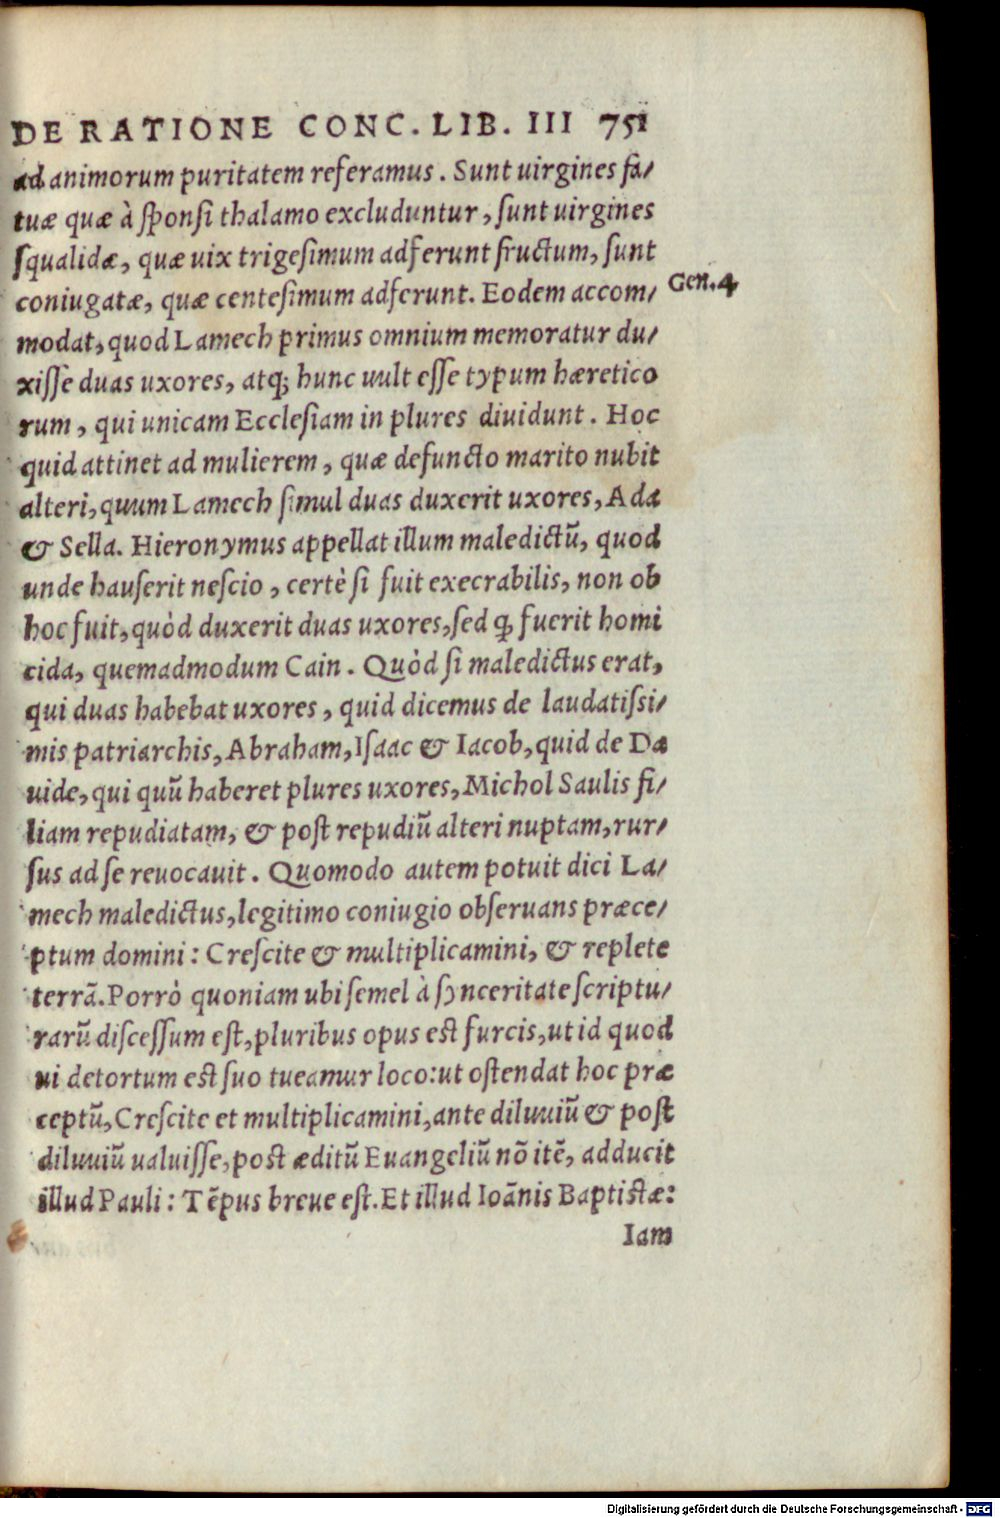 DE RATIONE CONC. LIB. III 751
ad animorum puritatem referamus. Sunt uirgines fa/
tuæ quæ à ſponſi thalamo excluduntur, ſunt uirgines
ſqualidæ, quæ uix trigeſimum adferunt fructum, ſunt
coniugatæ, quæ centeſimum adferunt. Eodem accom/
Gen. 4
modat, quod Lamech primus omnium memoratur du/
xiſſe duas uxores, atq; hunc uult eſſe typum hæretico
rum, qui unicam Eccleſiam in plures diuidunt. Hoc
quid attinet ad mulierem, quæ defuncto marito nubit
alteri, quum Lamech ſimul duas duxerit uxores, Ada
& Sella. Hieronymus appellat illum maledictũ, quod
unde hauſerit neſcio, certè ſi fuit execrabilis, non ob
hoc fuit, quòd duxerit duas uxores, ſed ꝙ fuerit homi
cida, quemadmodum Cain. Quòd ſi maledictus erat,
qui duas habebat uxores, quid dicemus de laudatiſſi/
mis patriarchis, Abraham, Iſaac & Iacob, quid de Da
uide, qui quũ haberet plures uxores, Michol Saulis fi/
liam repudiatam, & poſt repudiũ alteri nuptam, rur/
ſus ad ſe reuocauit. Quomodo autem potuit dici La/
mech maledictus, legitimo coniugio obſeruans præce/
ptum domini: Creſcite & multiplicamini, & replete
terrã. Porrò quoniam ubi ſemel à ſynceritate ſcriptu/
rarũ diſceſſum eſt, pluribus opus eſt furcis, ut id quod
ui detortum eſt ſuo tueamur loco: ut oſtendat hoc præ
ceptũ, Creſcite et multiplicamini, ante diluuiũ & poſt
diluuiũ ualuiſſe, poſt æditũ Euangeliũ nõ itẽ, adducit
illud Pauli: Tẽpus breue eſt. Et illud Ioãnis Baptiſtæ:
Iam
Digitalisierung gefördert durch die Deutsche Forschungsgemeinschaft - DFG